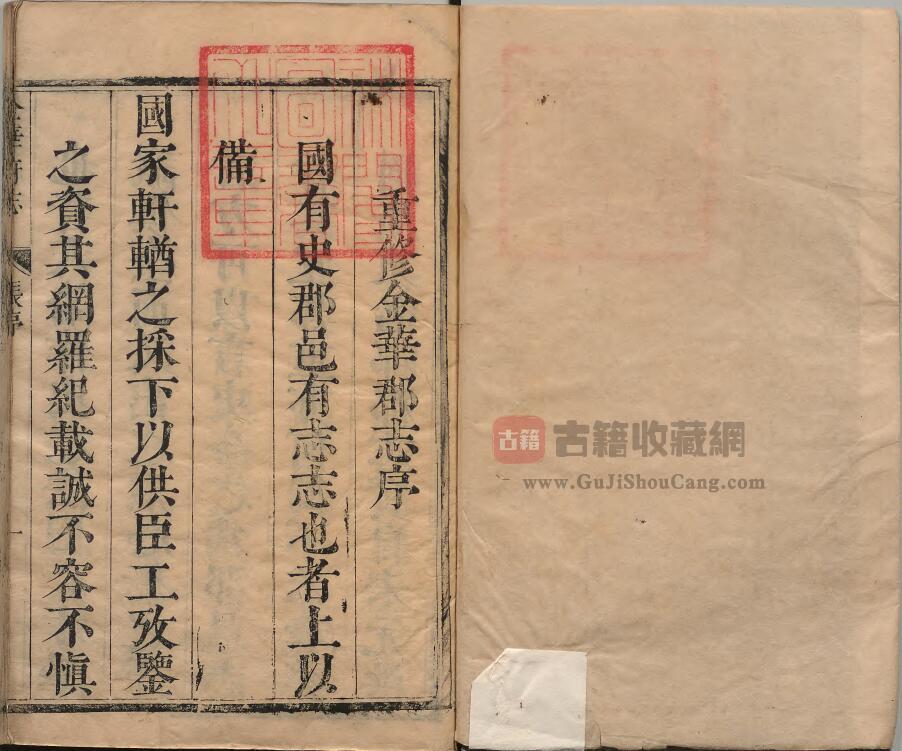 重修金華郡志序
國有史郡邑有志志也者上以
備
國家軒輶之採下以供臣工攷鑒
之資其網羅紀載誠不容不愼
張序
一
古籍
古籍收藏網
www.GuJiShouCang.com